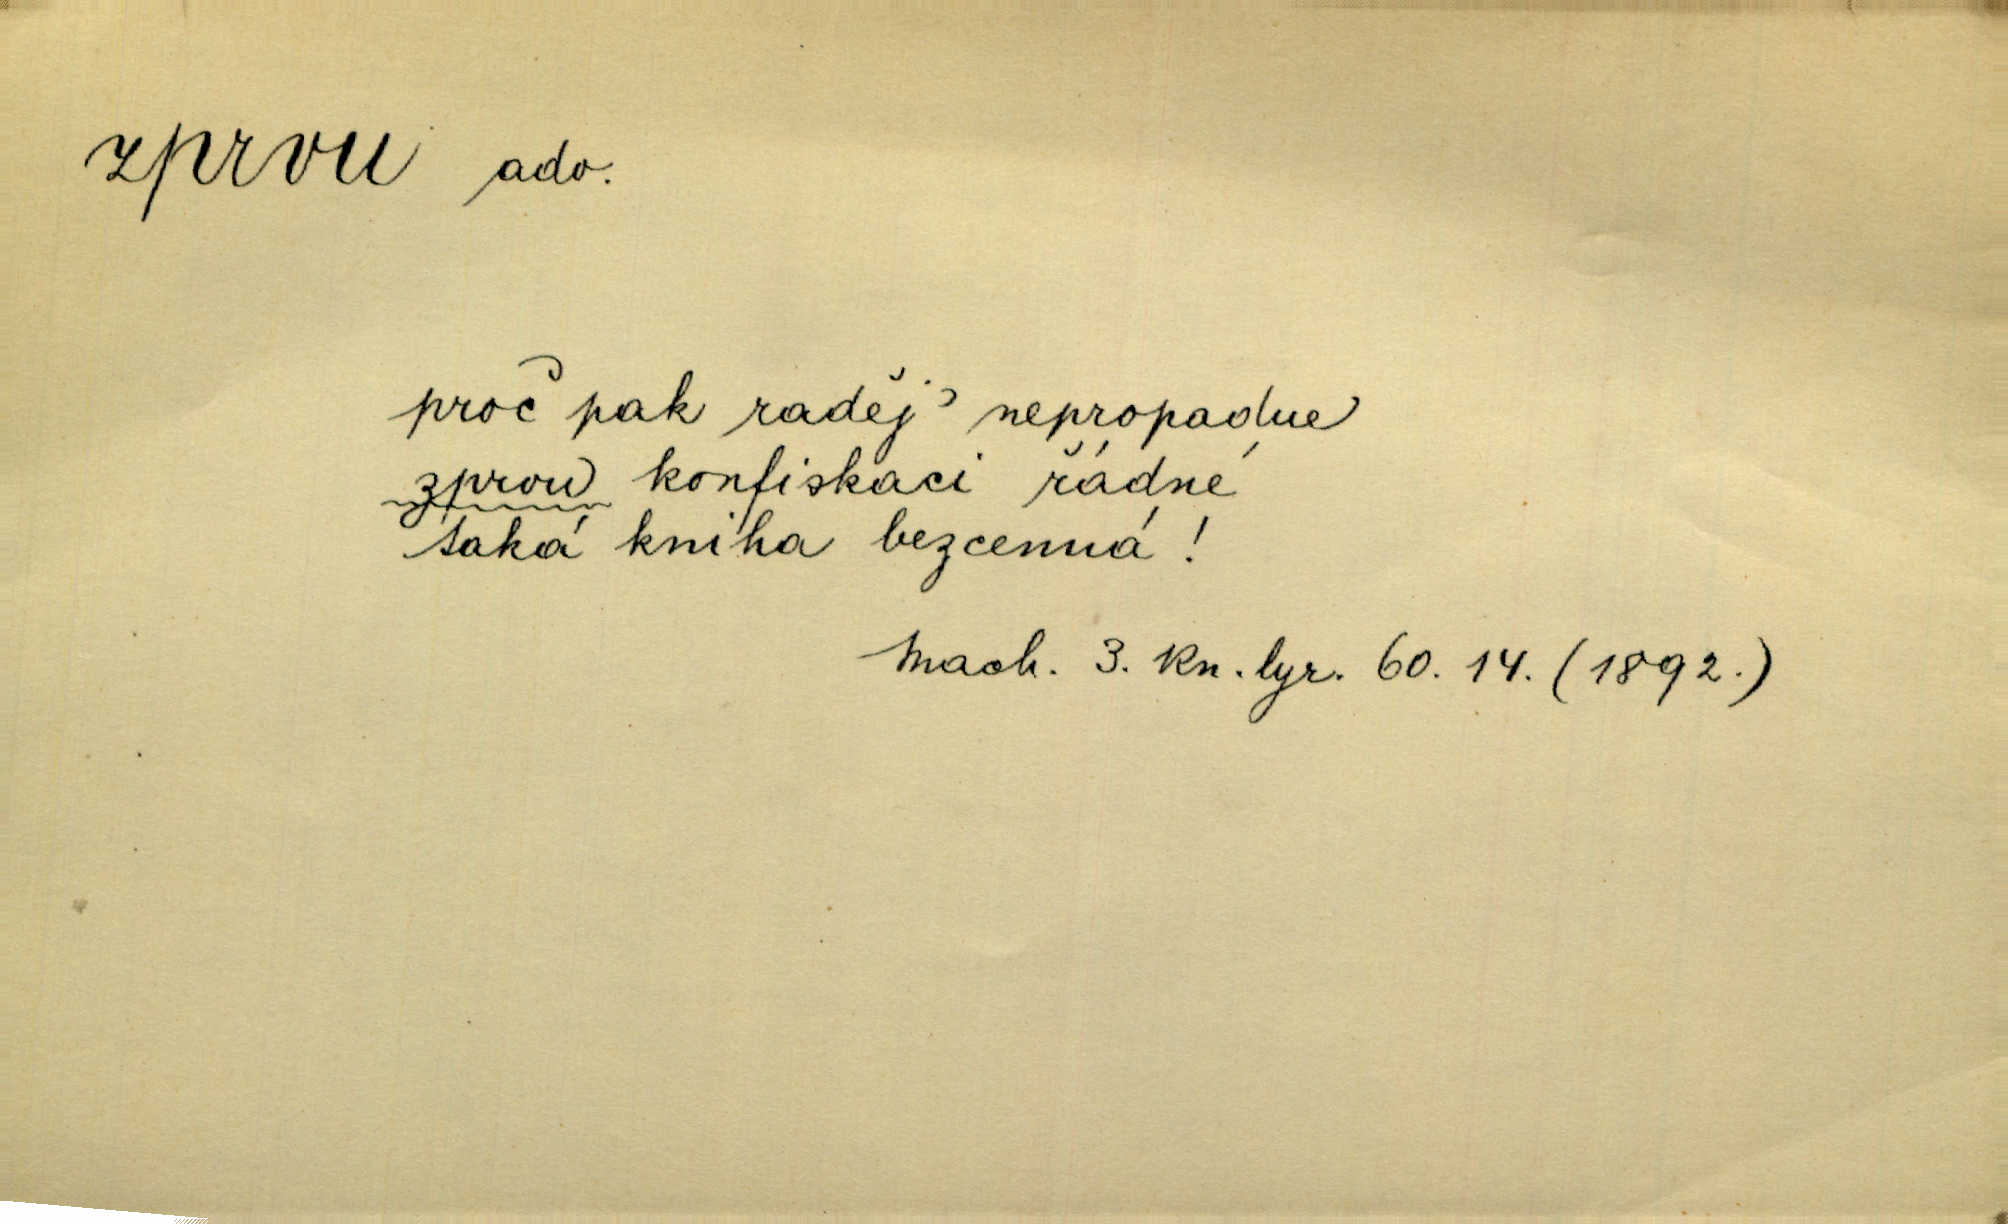 zprvu adv.
proč pak raděj' nepropadne
zprvu konfiskaci řádné
taká kniha bezcenná!
Mach. 3. kn. lyr. 60. 14. (1892.)